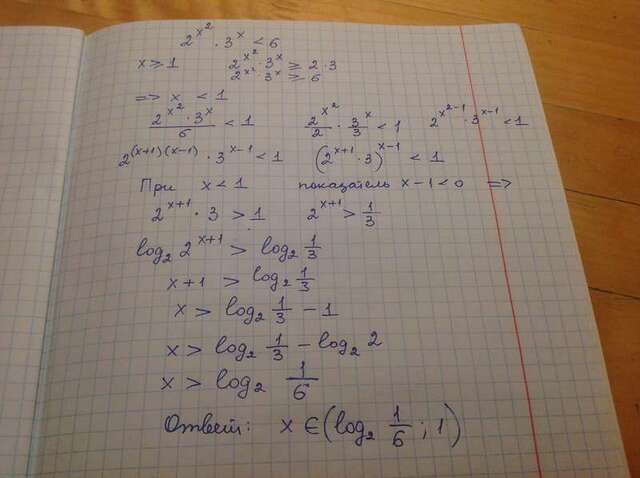 2^{x^2} · 3^x < 6
x ⩾ 1    2^{x^2} · 3^x ⩾ 2 · 3
2^{x^2} · 3^x ⩾ 6
=> x < 1
\frac{2^{x^2} · 3^x}{6} < 1    \frac{2^{x^2}}{2} · \frac{3^x}{3} < 1    2^{x^2-1} · 3^{x-1} < 1
2^{(x+1)(x-1)} · 3^{x-1} < 1    (2^{x+1} · 3)^{x-1} < 1
При x < 1 показатель x - 1 < 0 =>
2^{x+1} · 3 > 1    2^{x+1} > \frac{1}{3}
log_2 2^{x+1} > log_2 \frac{1}{3}
x + 1 > log_2 \frac{1}{3}
x > log_2 \frac{1}{3} - 1
x > log_2 \frac{1}{3} - log_2 2
x > log_2 \frac{1}{6}
Ответ: x ∈ (log_2 \frac{1}{6} ; 1)